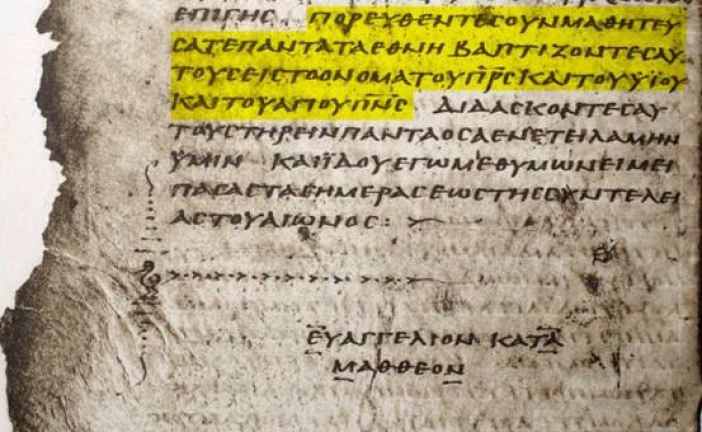 ΕΠΙΓΗϹ . ΠΟΡΕΥΘΕΝΤΕϹΟΥΝΜΑΘΗΤΕΥ
ϹΑΤΕΠΑΝΤΑΤΑΕΘΝΗ ΒΑΠΤΙΖΟΝΤΕϹΑΥ
ΤΟΥϹΕΙϹΤΟΟΝΟΜΑΤΟΥΠ̅Ρ̅Ϲ ΚΑΙΤΟΥΥΪΟΥ
ΚΑΙΤΟΥΑΓΙΟΥΠ̅Ν̅Ϲ ΔΙΔΑϹΚΟΝΤΕϹΑΥ
ΤΟΥϹΤΗΡΕΙΝΠΑΝΤΑΟϹΑΕΝΕΤΕΙΛΑΜΗΝ
ΫΜΙΝ ΚΑΙΪΔΟΥΕΓΩΜΕΘΥΜΩΝΕΙΜΕΙ
ΠΑϹΑϹΤΑϹΗΜΕΡΑϹΕΩϹΤΗϹϹΥΝΤΕΛΕΙ
ΑϹΤΟΥΑΙΩΝΟϹ :
ΕΥΑΓΓΕΛΙΟΝ ΚΑΤΑ
ΜΑΘΘΕΟΝ